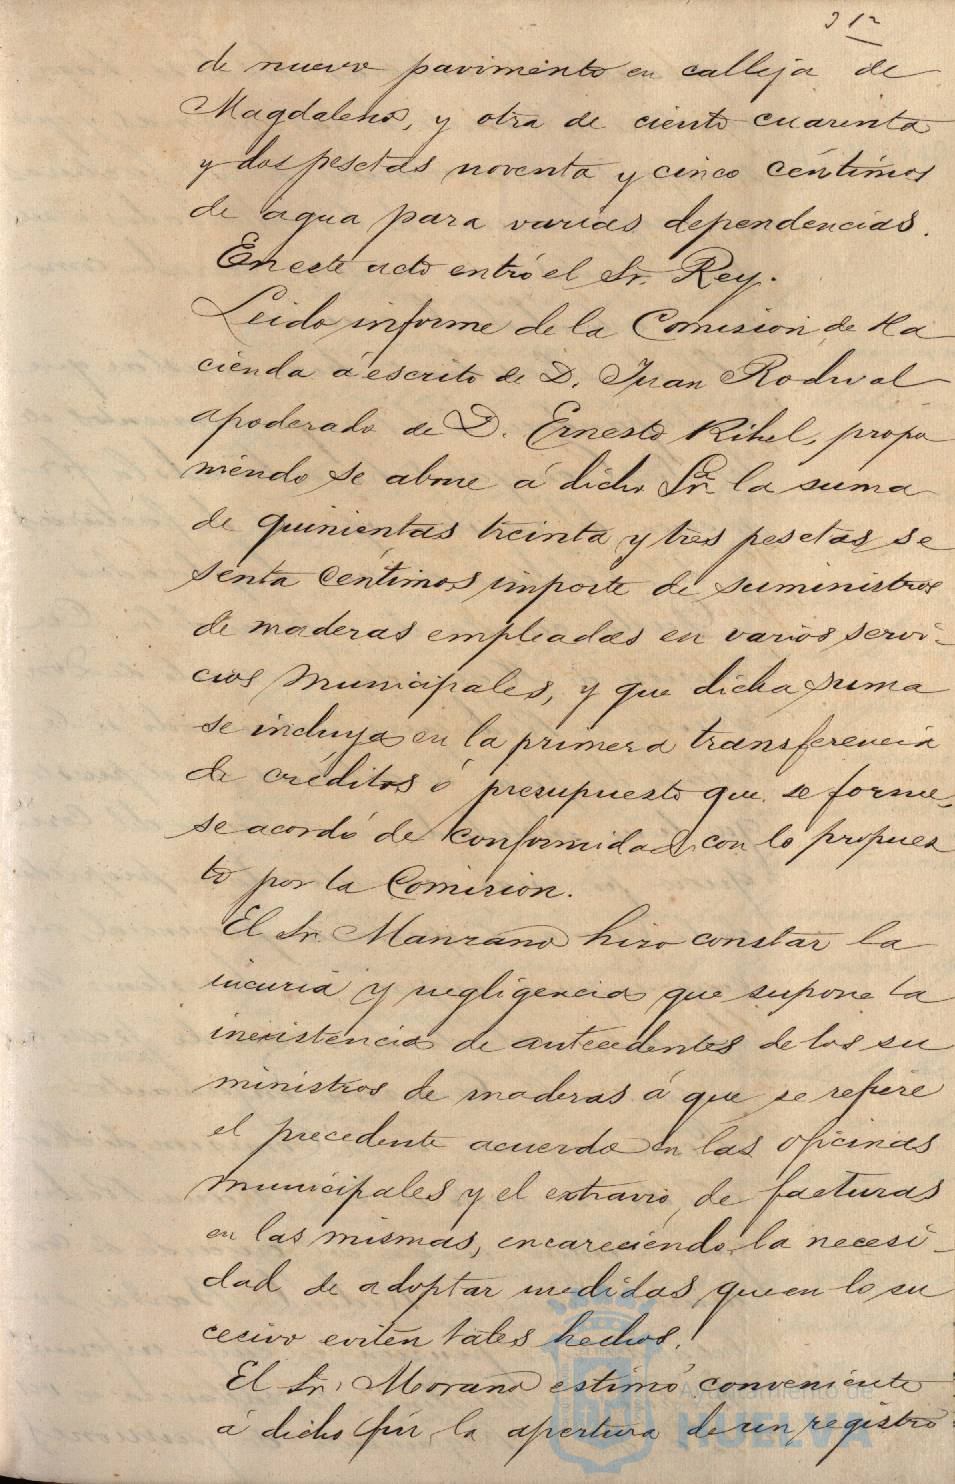 de nuevo pavimento en calleja de
Magdalena, y otra de ciento cuarenta
y dos pesetas noventa y cinco céntimos
de agua para varias dependencias.
En este acto entró el Sr. Rey.
Leido informe de la Comision de Ha
cienda á escrito de D. Juan
apoderado de D. Ernesto propo
niendo se abone á dicho Sr. la suma
de quinientas treinta y tres pesetas se
senta céntimos importe de suministros
de maderas empleadas en varios servi-
cios Municipales, y que dicha suma
se incluya en la primera transferencia
de créditos ó presupuesto que se forme,
se acordó de conformidad con lo propues
to por la Comision.
El Sr. Manzano hizo constar la
incuria y negligencia que supone la
inexistencia de antecedentes de los su
ministros de maderas á que se refiere
el precedente acuerdo en las oficinas
municipales y el extravio de facturas
en las mismas, encareciendo la necesi-
dad de adoptar medidas que en lo su
cesivo eviten tales hechos.
El Sr. Morano estimó conveniente
á dicho fin la apertura de un registro
Ayuntamiento de
HUELVA